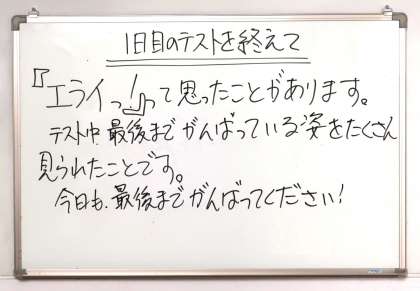 1日目のテストを終えて
『エライっ!』って思ったことがあります。
テスト中、最後までがんばっている姿をたくさん
見られたことです。
今日も、最後までがんばってください!